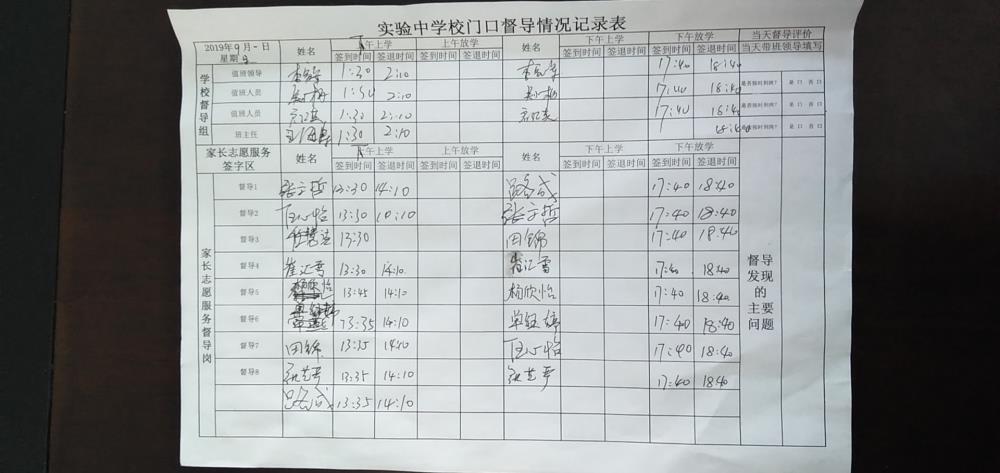 实验中学校门口督导情况记录表
2019年9月-日
星期
姓名 下午上学 上午放学 姓名 下午上学 下午放学 当天督导评价
签到时间 签退时间 签到时间 签退时间 签到时间 签退时间 签到时间 签退时间 当天带班领导填写
学校督导组
值班领导 1:30 2:10 17:40 18:40
值班人员 1:30 2:10 17:40 18:40 是否按时到岗? 是口 否口
值班人员 1:30 2:10 17:40 18:40 是否按时到岗? 是口 否口
班主任 1:30 2:10 18:40 是否按时到岗? 是口 否口
家长志愿服务签字区 姓名 下午上学 上午放学 姓名 下午上学 下午放学
签到时间 签退时间 签到时间 签退时间 签到时间 签退时间 签到时间 签退时间
家长志愿服务督导岗
督导1 张文哲 13:30 14:10 路成 17:40 18:40
督导2 任心怡 13:30 10:10 张文哲 17:40 18:40
督导3 13:30 田锦 17:40 18:40
督导4 崔汇雪 13:30 14:10 崔汇雪 17:40 18:40
督导5 杨欣怡 13:45 14:10 杨欣怡 17:40 18:40
督导6 13:35 14:10 单钰婷 17:40 18:40
督导7 田锦 13:35 14:10 任心怡 17:40 18:40
督导8 13:35 14:10 17:40 18:40
路成 13:35 14:10
督导发现的主要问题